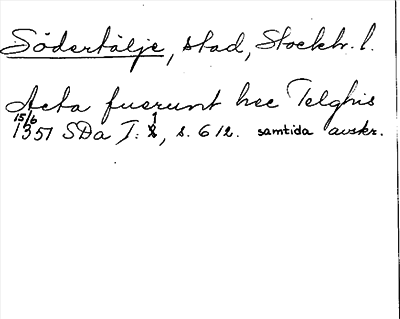 Södertälje, stad, Stockh. l.
Acta fuerunt hec Telghis
15/6
1351 SDa I: 1, s. 612. samtida avskr.